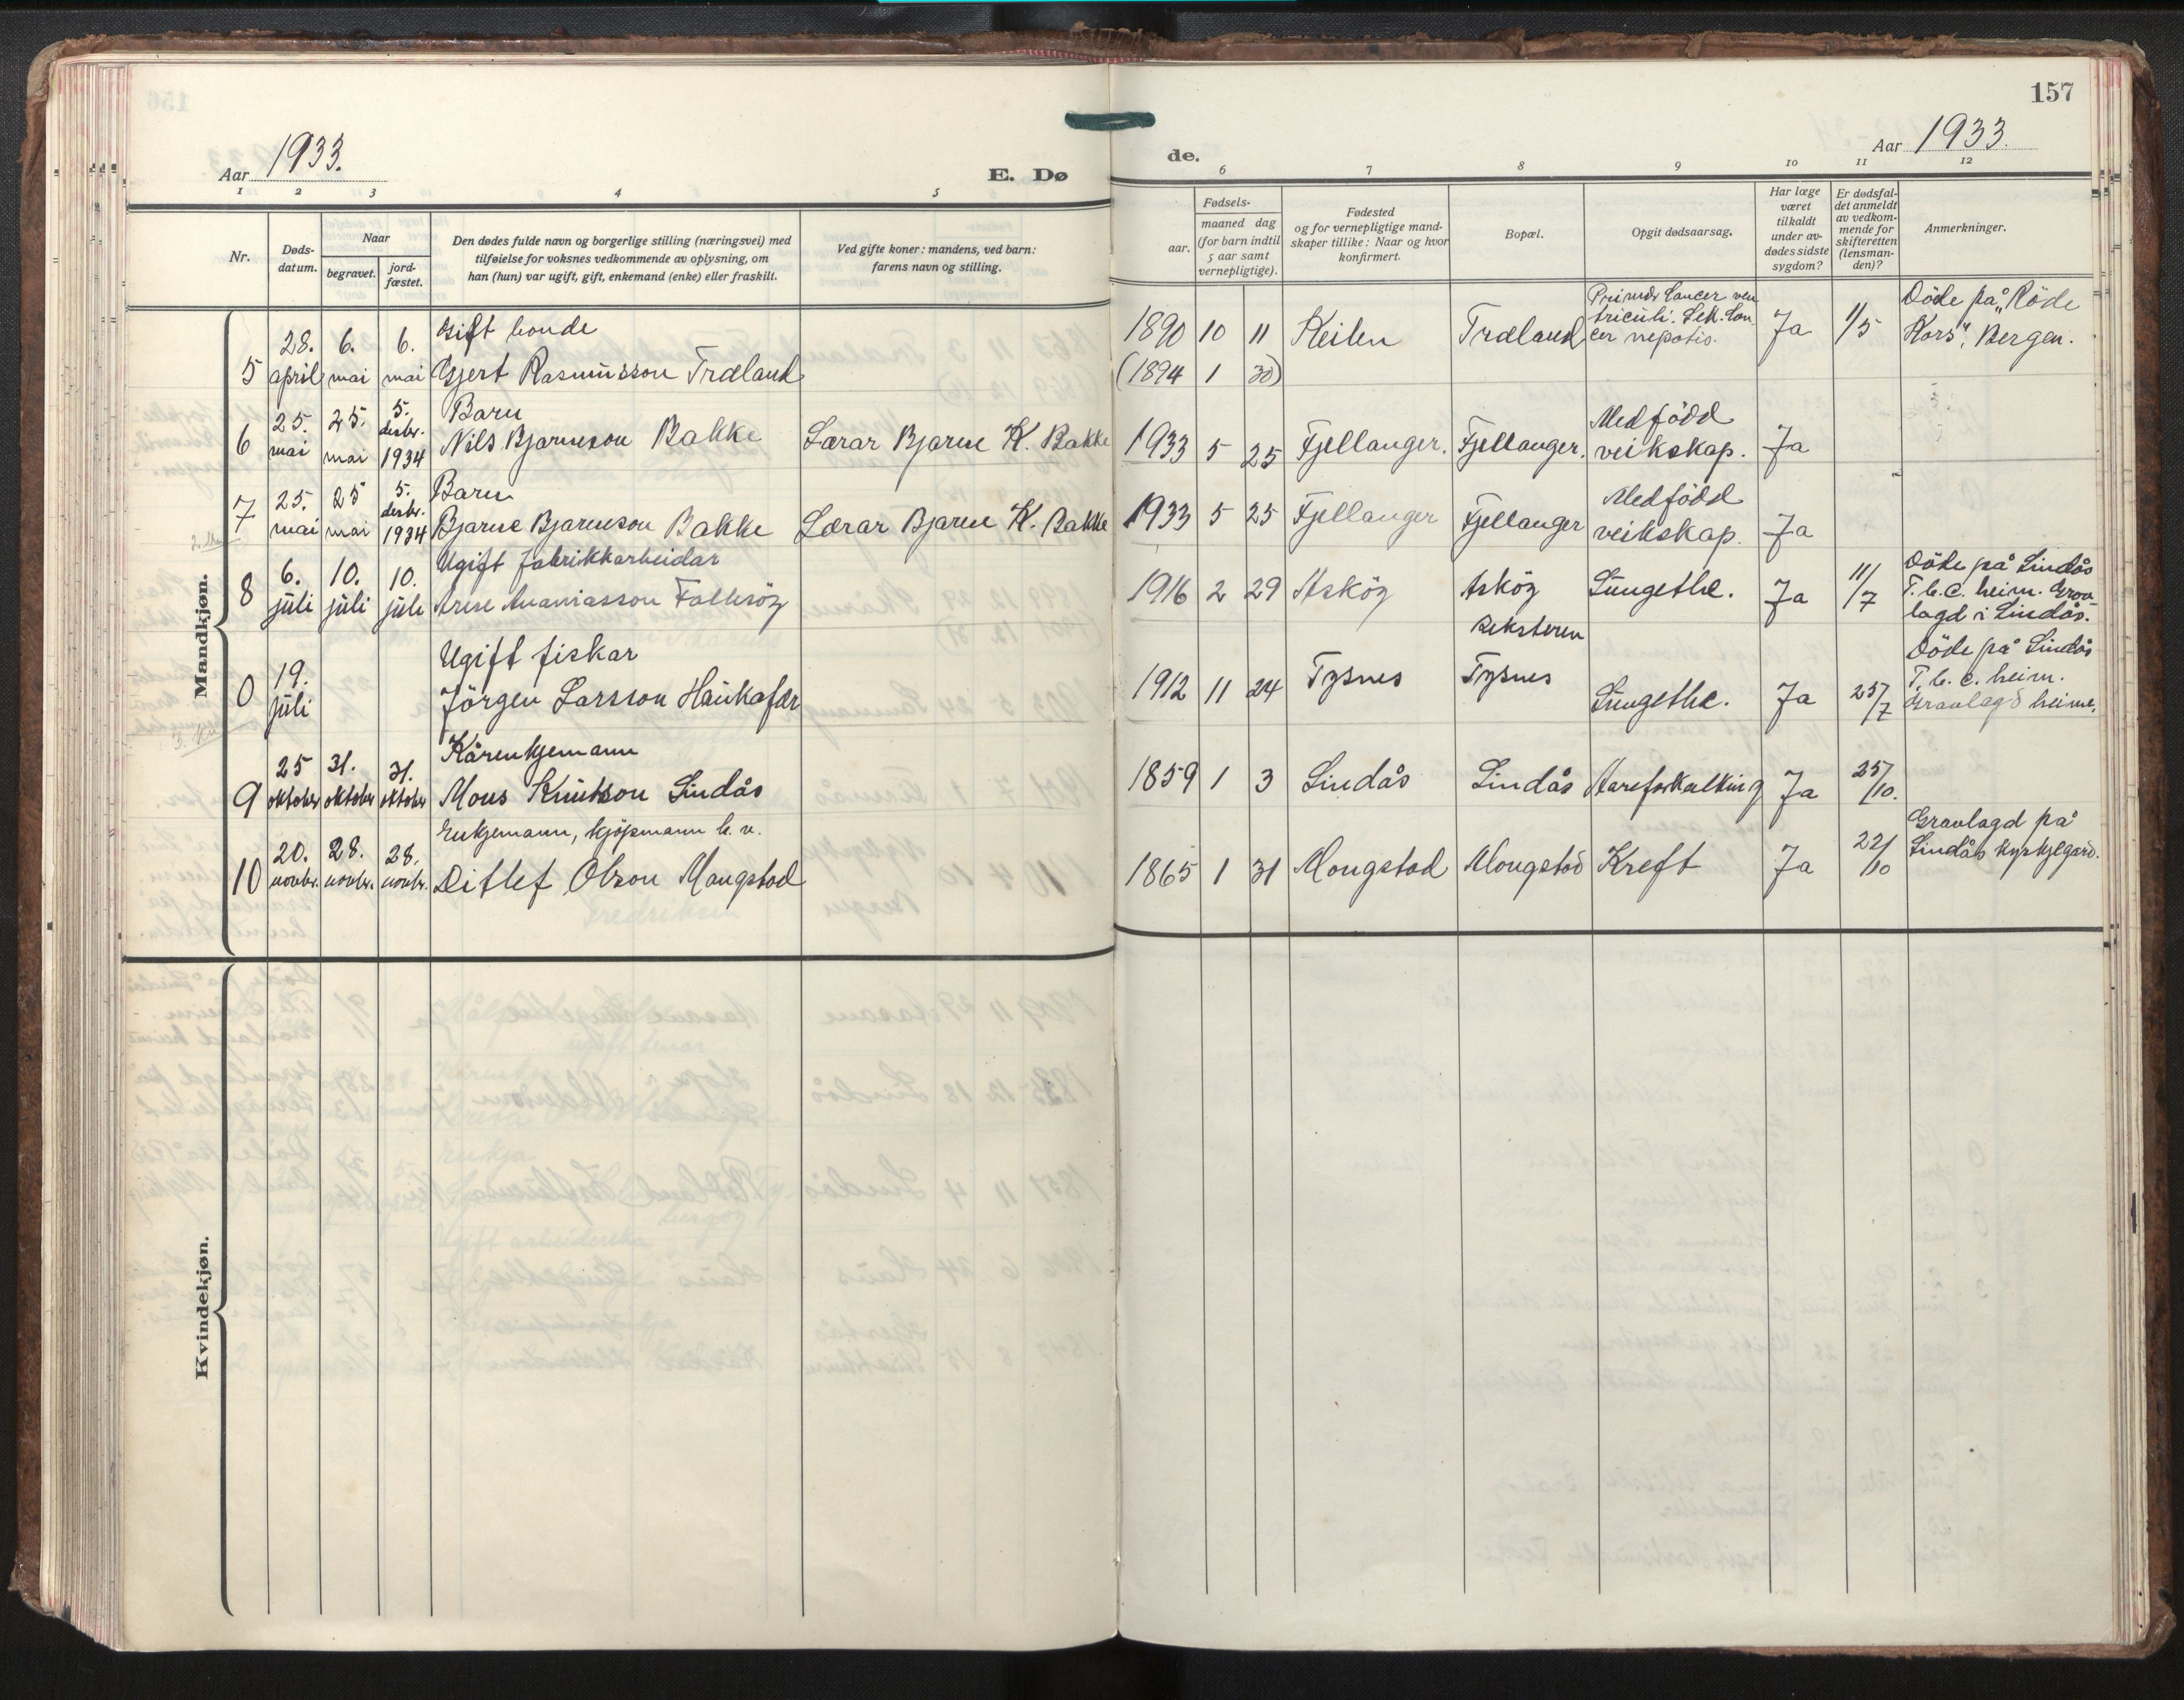 157
Aar 1933.
E. Dø
de.
Aar 1933.
1 2 3 4 5
6 7 8 9 10 11 12
Nr.
Døds-
datum.
Naar
begravet.
jord-
fæstet.
Den dødes fulde navn og borgerlige stilling (næringsvei) med
tilføielse for voksnes vedkommende av oplysning, om
han (hun) var ugift, gift, enkemand (enke) eller fraskilt.
Ved gifte koner: mandens, ved barn:
farens navn og stilling.
Fødsels-
aar.
maaned dag
(for barn indtil
5 aar samt
vernepligtige).
Fødested
og for vernepligtige mand-
skaper tillike: Naar og hvor
konfirmert.
Bopæl.
Opgit dødsaarsag.
Har læge
været
tilkaldt
under av-
dødes sidste
sygdom?
Er dødsfal-
det anmeldt
av vedkom-
mende for
skifteretten
(lensman-
den)?
Anmerkninger.
Mandkjøn.
5
28.
april
6.
mai
6.
mai
Gift bonde
Gjert Rasmusson Træland
1890 10 11
(1894 1 30)
Keilen
Træland
Primær Cancer ven
triculi. Sek. Can
cer hepatis.
Ja
1/5
Döde på "Röde
Kors", Bergen.
6
25.
mai
25.
mai
5.
desbr.
1934
Barn
Nils Bjarneson Bakke
Lærar Bjarne K. Bakke
1933 5 25
Fjellanger.
Fjellanger.
Medfödd
veikskap.
Ja
7
25.
mai
25
mai
5.
desbr.
1934
Barn
Bjarne Bjarneson Bakke
Lærar Bjarne K. Bakke
1933 5 25
Fjellanger
Fjellanger
Medfödd
veikskap.
Ja
8
6.
juli
10.
juli
10.
juli
Ugift fabrikkarbeidar
Arne Ananiasson Follesöy
1916 2 29
Asköy
Asköy
Lungetbc.
Ja
11/7
Döde på Lindås
T.b.c. heim. Grav
lagd i Lindås.
0
19.
juli
Ugift fiskar
Jörgen Larsson Haukafær
1912 11 24
Tysnes
Reksteren
Tysnes
Lungetbc.
Ja
25/7
Döde på Lindås
T.b.c. heim.
Gravlagd heime.
9
25
oktober
31.
oktober
31.
oktober
Kårenkjemann
Mons Knutson Lindås
1859 1 3
Lindås
Lindås
Åreforkalking
Ja
25/10.
10
20.
novbr.
28.
novbr.
28.
novbr.
Enkjemann, kjöpmann h. v.
Ditlef Olson Mongstad
1865 1 31
Mongstad
Mongstad
Kreft
Ja
22/10
Gravlagd på
Lindås kyrkjegard.
Kvindekjøn.